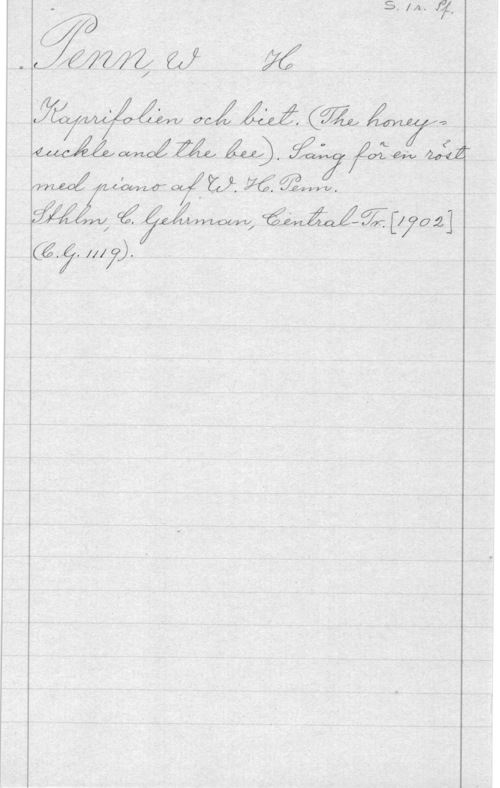 S. 1 r. Pf.
Penn, W H
Kaprifolien och biet. (The honey=
suckle and the bee). Sång för en röst
med piano af W. H. Penn.
Sthlm, C. Gehrman, Central-Tr. [1902]
(C. G. 1119).